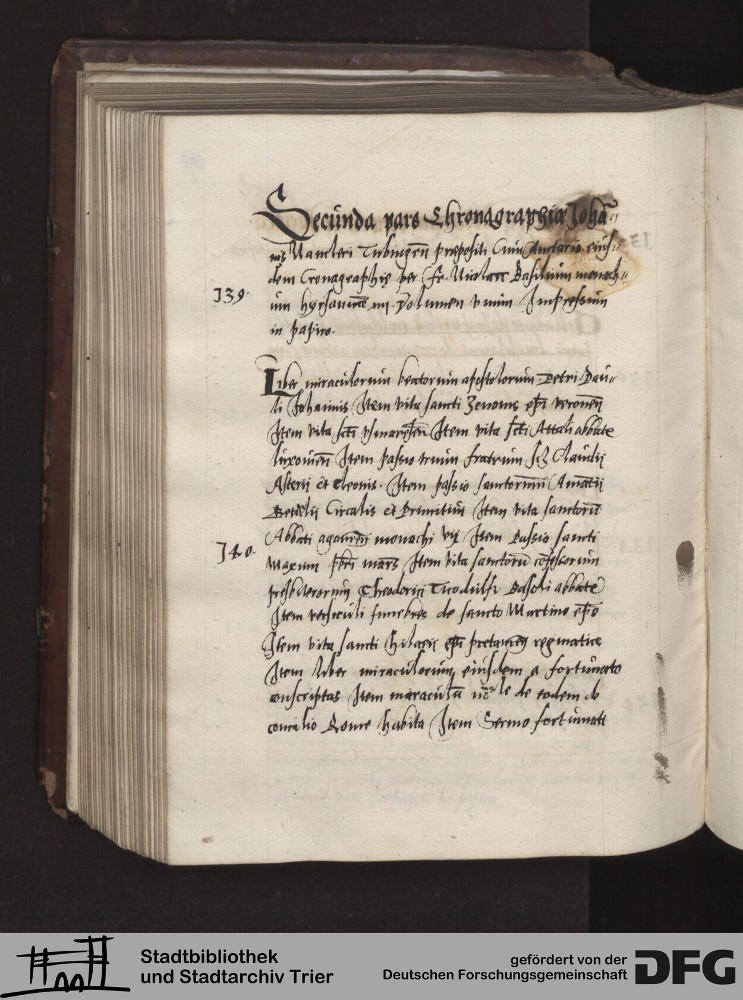 Secunda pars Chronographiæ Johan=
nis Naucleri Tubingen̄ præpositi Cum Auctario eius=
dem Cronographię per fr. Nicolaū Basilium monach=
139.
um hyrsaugien̄ in volumen unum Impressum
in papiro.
Liber miraculorum beatorum apostolorum Petri Pau=
li Johannis Item vita sancti Zenonis ep̄i veronen̄
Item vita sc̄ti Item vita sc̄ti Attali abbate
luxouien̄ Item passio trium fratrum scz Claudij
Asterii et Neonis. Item passio sanctorum Amatij
Berelij Circalis et Primitiui Item vita sanctorū
Abbati agaunen̄ monachi Item Passio sancti
140.
Maxim Item vita sanctorū cōfessorum
presbiterorum Theoderici Teodulfi Basoli abbate
Item versiculi funebres de sancto Martino ep̄o
Item vita sancti hilarij ep̄i pictauien̄
Item liber miraculorum eiusdem a fortunato
conscriptus Item miraculū de eodem de
concilio Rome habita Item Sermo fortunati
Stadtbibliothek
und Stadtarchiv Trier
gefördert von der
Deutschen Forschungsgemeinschaft
DFG